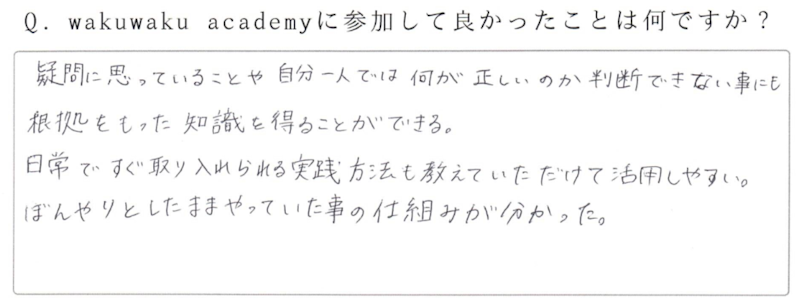 Q. wakuwaku academyに参加して良かったことは何ですか？
疑問に思っていることや 自分一人では 何が 正しいのか 判断できない事にも
根拠をもった 知識を得ることができる。
日常で すぐ取り入れられる実践方法も教えていただけて活用しやすい。
ぼんやりとしたままやっていた事の仕組みが分かった。